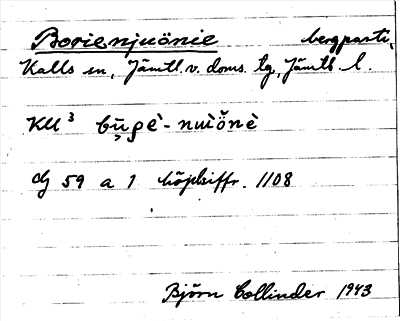 Borienjuönie bergparti,
Kalls sn, Jämtl. v. doms. tg, Jämtl. l.
KU³ bu̯ρè-nuǒnè
dg 59 a 1 höjdsiffr. 1108
Björn Collinder 1943